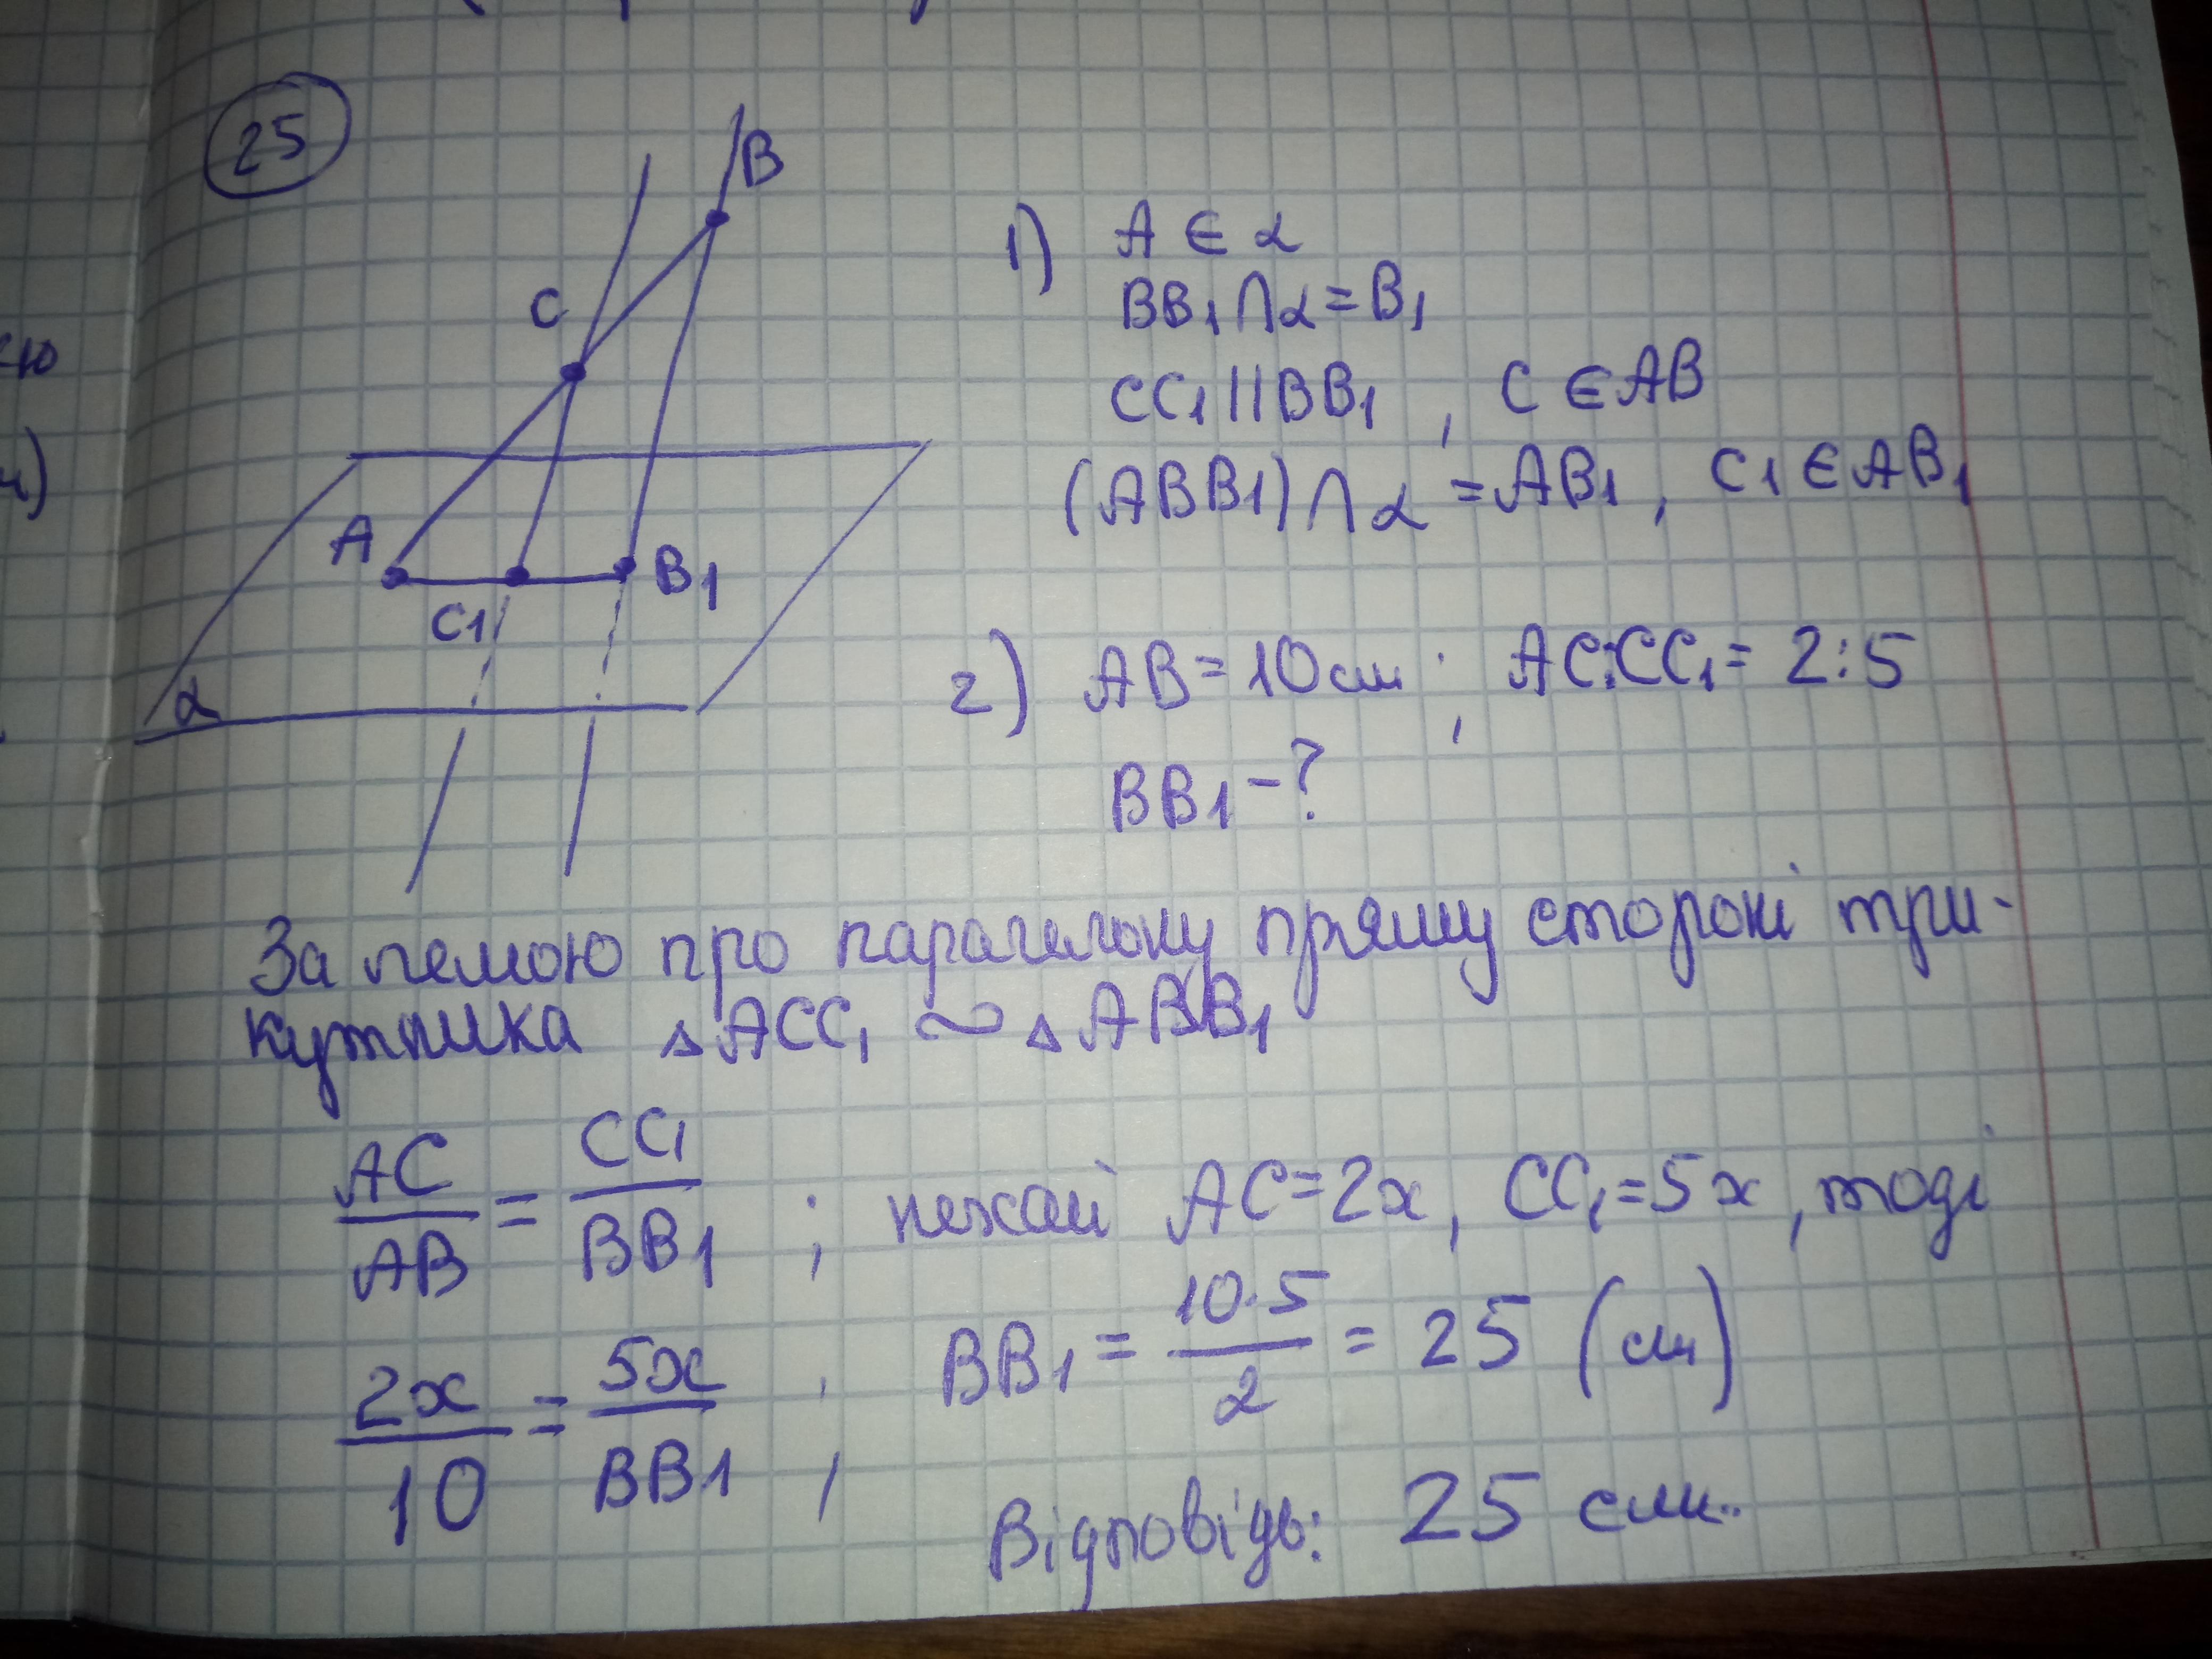 25
B
C
A
C1
B1
α
1) A ∈ α
BB1 ∩ α = B1
CC1 || BB1 , C ∈ AB
(ABB1) ∩ α = AB1 , C1 ∈ AB1
2) AB = 10 см ; AC:CC1 = 2:5
BB1 - ?
За лемою про паралельну пряму стороні три-
кутника △ACC1 ~ △ABB1
AC/AB = CC1/BB1 ; нехай AC = 2x, CC1 = 5x, тоді
2x/10 = 5x/BB1 ; BB1 = 10·5/2 = 25 (см)
Відповідь: 25 см.